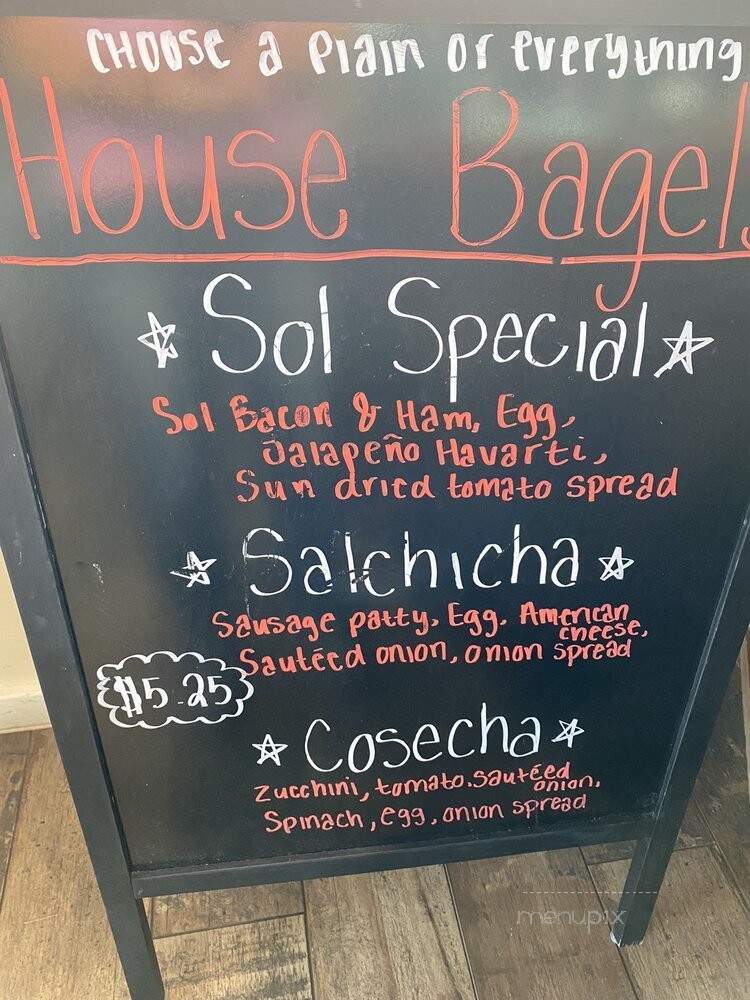 CHOOSE a Plain or everything
House Bagels
Sol Special
Sol Bacon & Ham, Egg,
Jalapeño Havarti,
Sun dried tomato spread
Salchicha
Sausage patty, Egg, American
cheese,
Sautéed onion, onion spread
$5.25
Cosecha
Zucchini, tomato, sautéed
onion,
Spinach, egg, onion spread
menupix